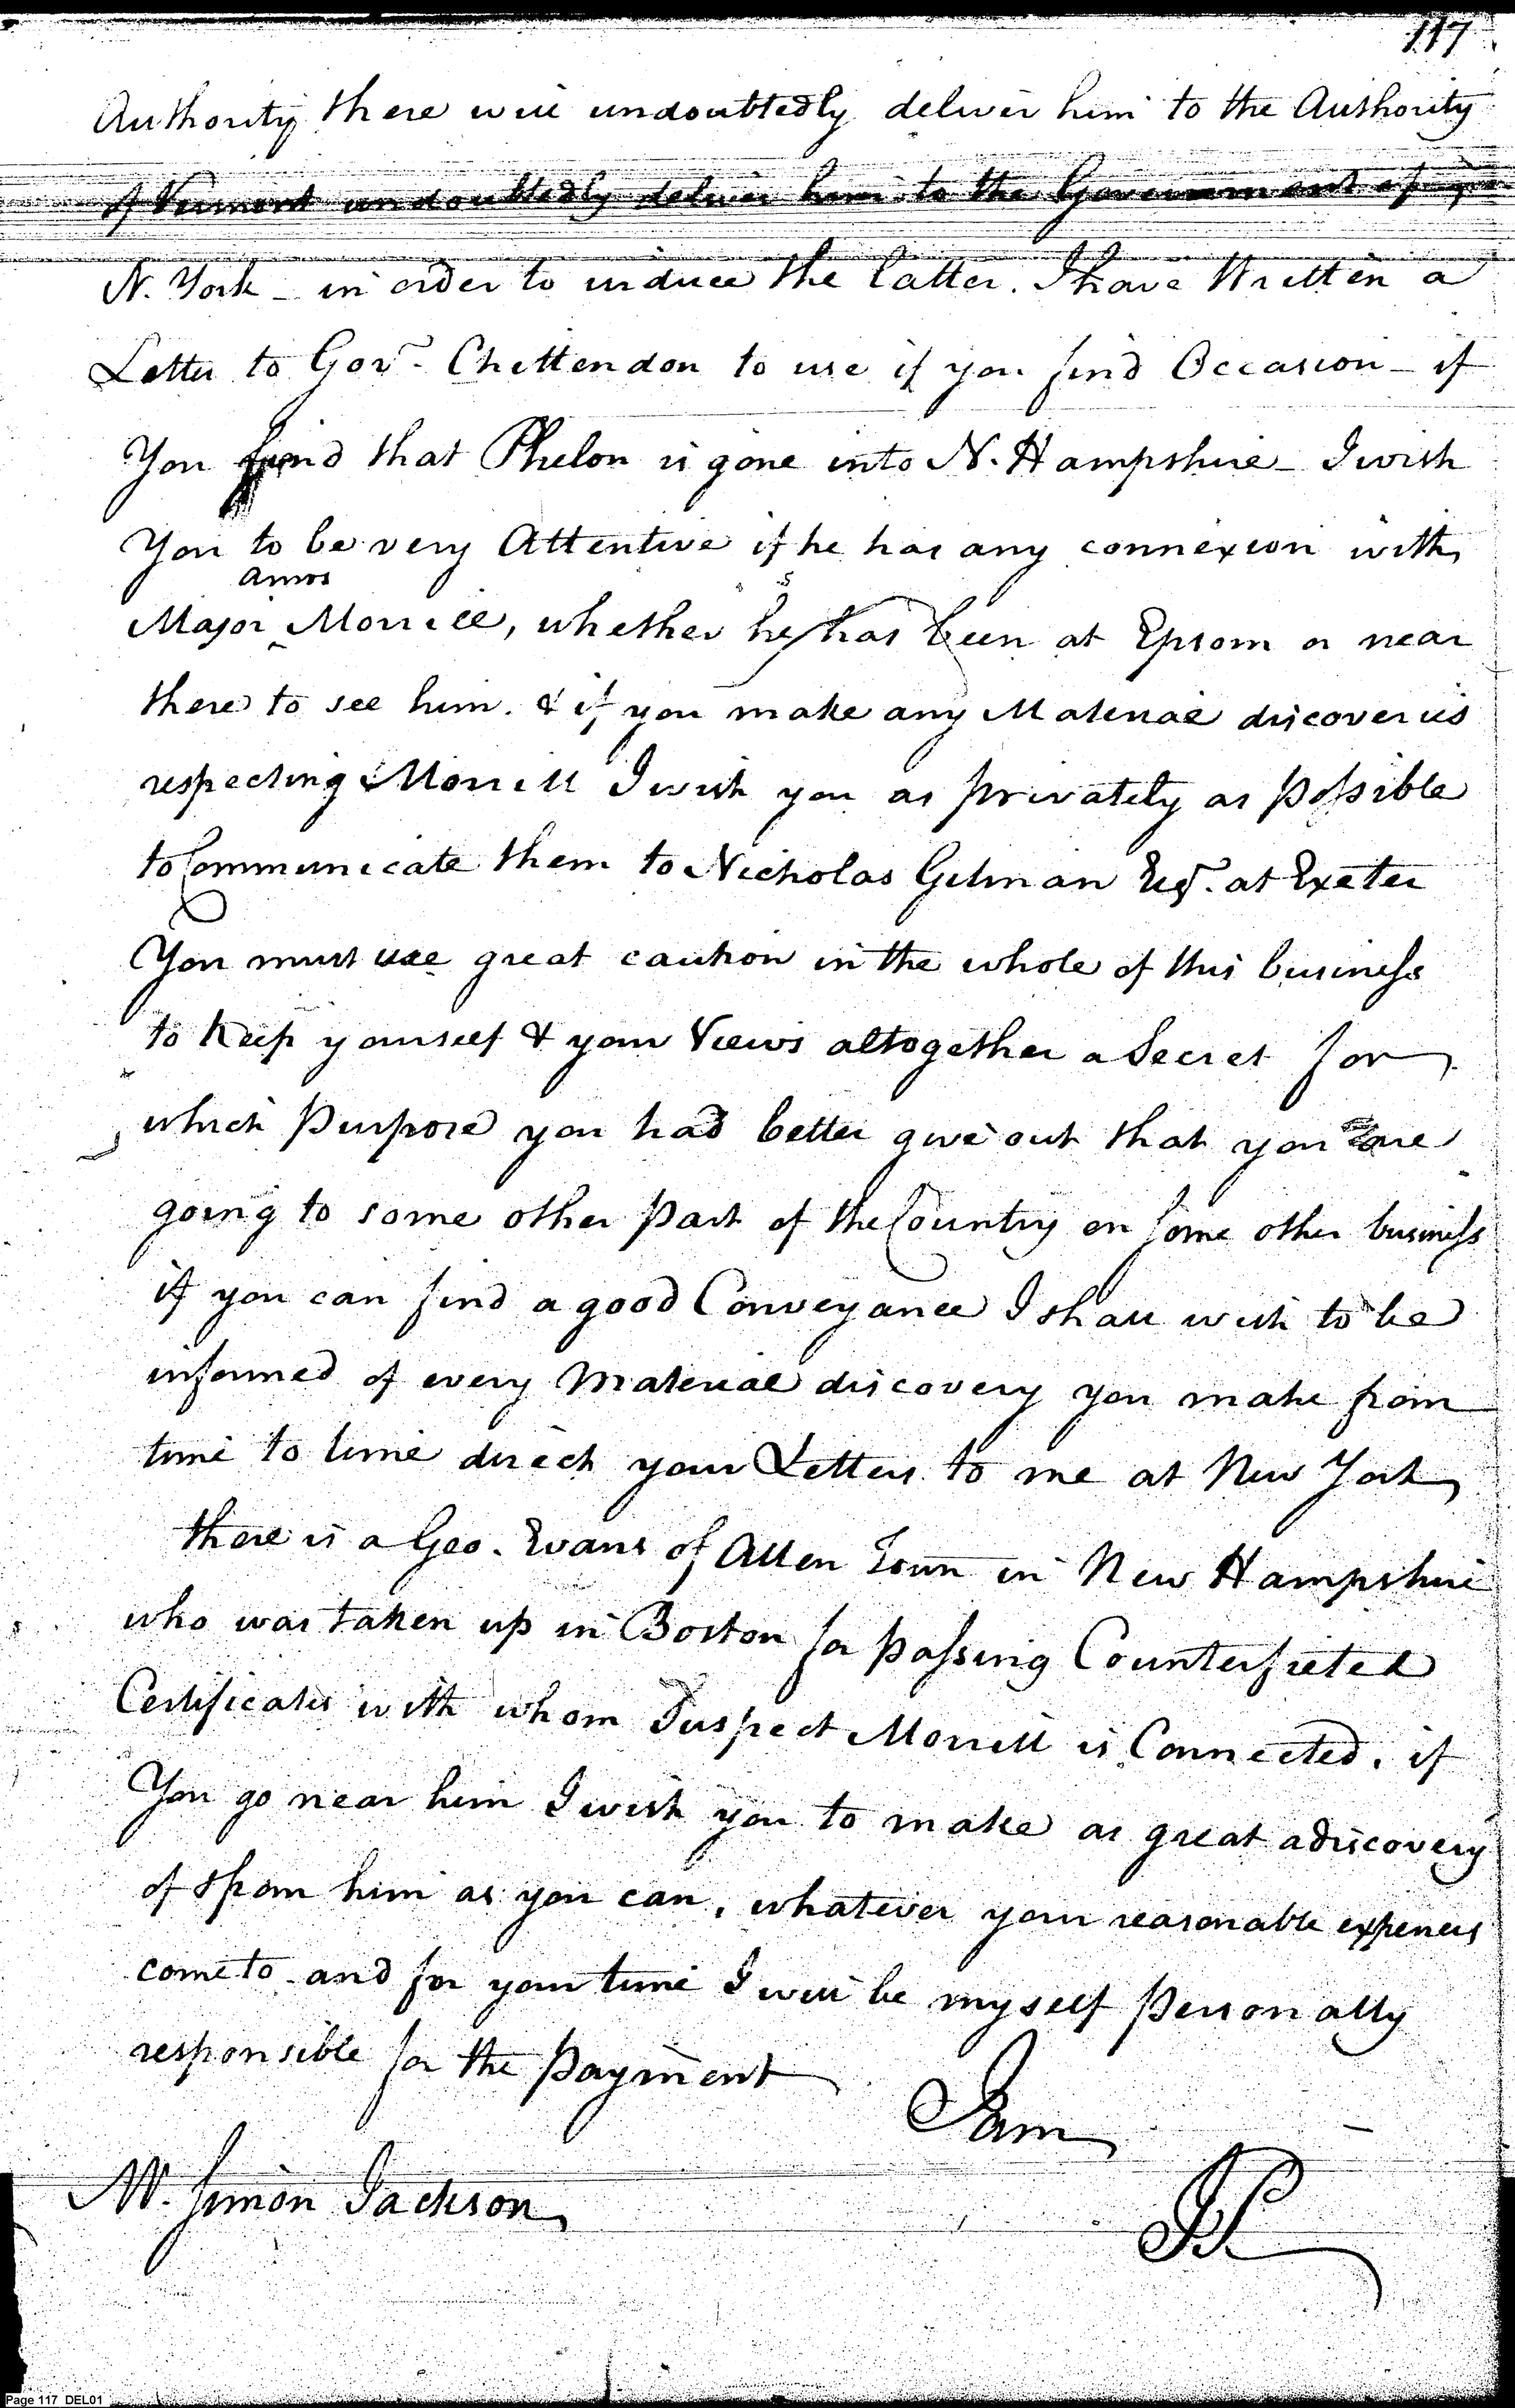 117
Authority there will undoubtedly deliver him to the Authority
of Vermont undoubtedly deliver him to the Government of
N. York - in order to induce the latter. I have Written a
Letter to Govr. Chettendon to use if you find Occasion - if
You find that Phelon is gone into N. Hampshire - I wish
You to be very Attentive if he has any connexion with
Amos
Major ‸ Morrill, whether he has been at Epsom or near
there to see him. & if you make any Material discoveries
respecting Morrill I wish you as privately as possible
to Communicate them to Nicholas Gilman Esqr. at Exeter
You must use great caution in the whole of this business
to Keep yourself & your Views altogether a Secret for
which Purpose you had better give out that you are
going to some other Part of the Country on some other business
if you can find a good Conveyance I shall wish to be
informed of every Material discovery you make from
time to time direct your Letters to me at New York
there is a Geo. Evans of Allen Town in New Hampshire
who was taken up in Boston for passing Counterfieted
Certificates with whom I suspect Morrill is Connected. if
You go near him I wish you to make as great a discovery
of & from him as you can, whatever your reasonable expences
come to - and for your time I will be myself Personally
responsible for the Payment
I am
Mr. Simon Jackson
Page 117 DEL01